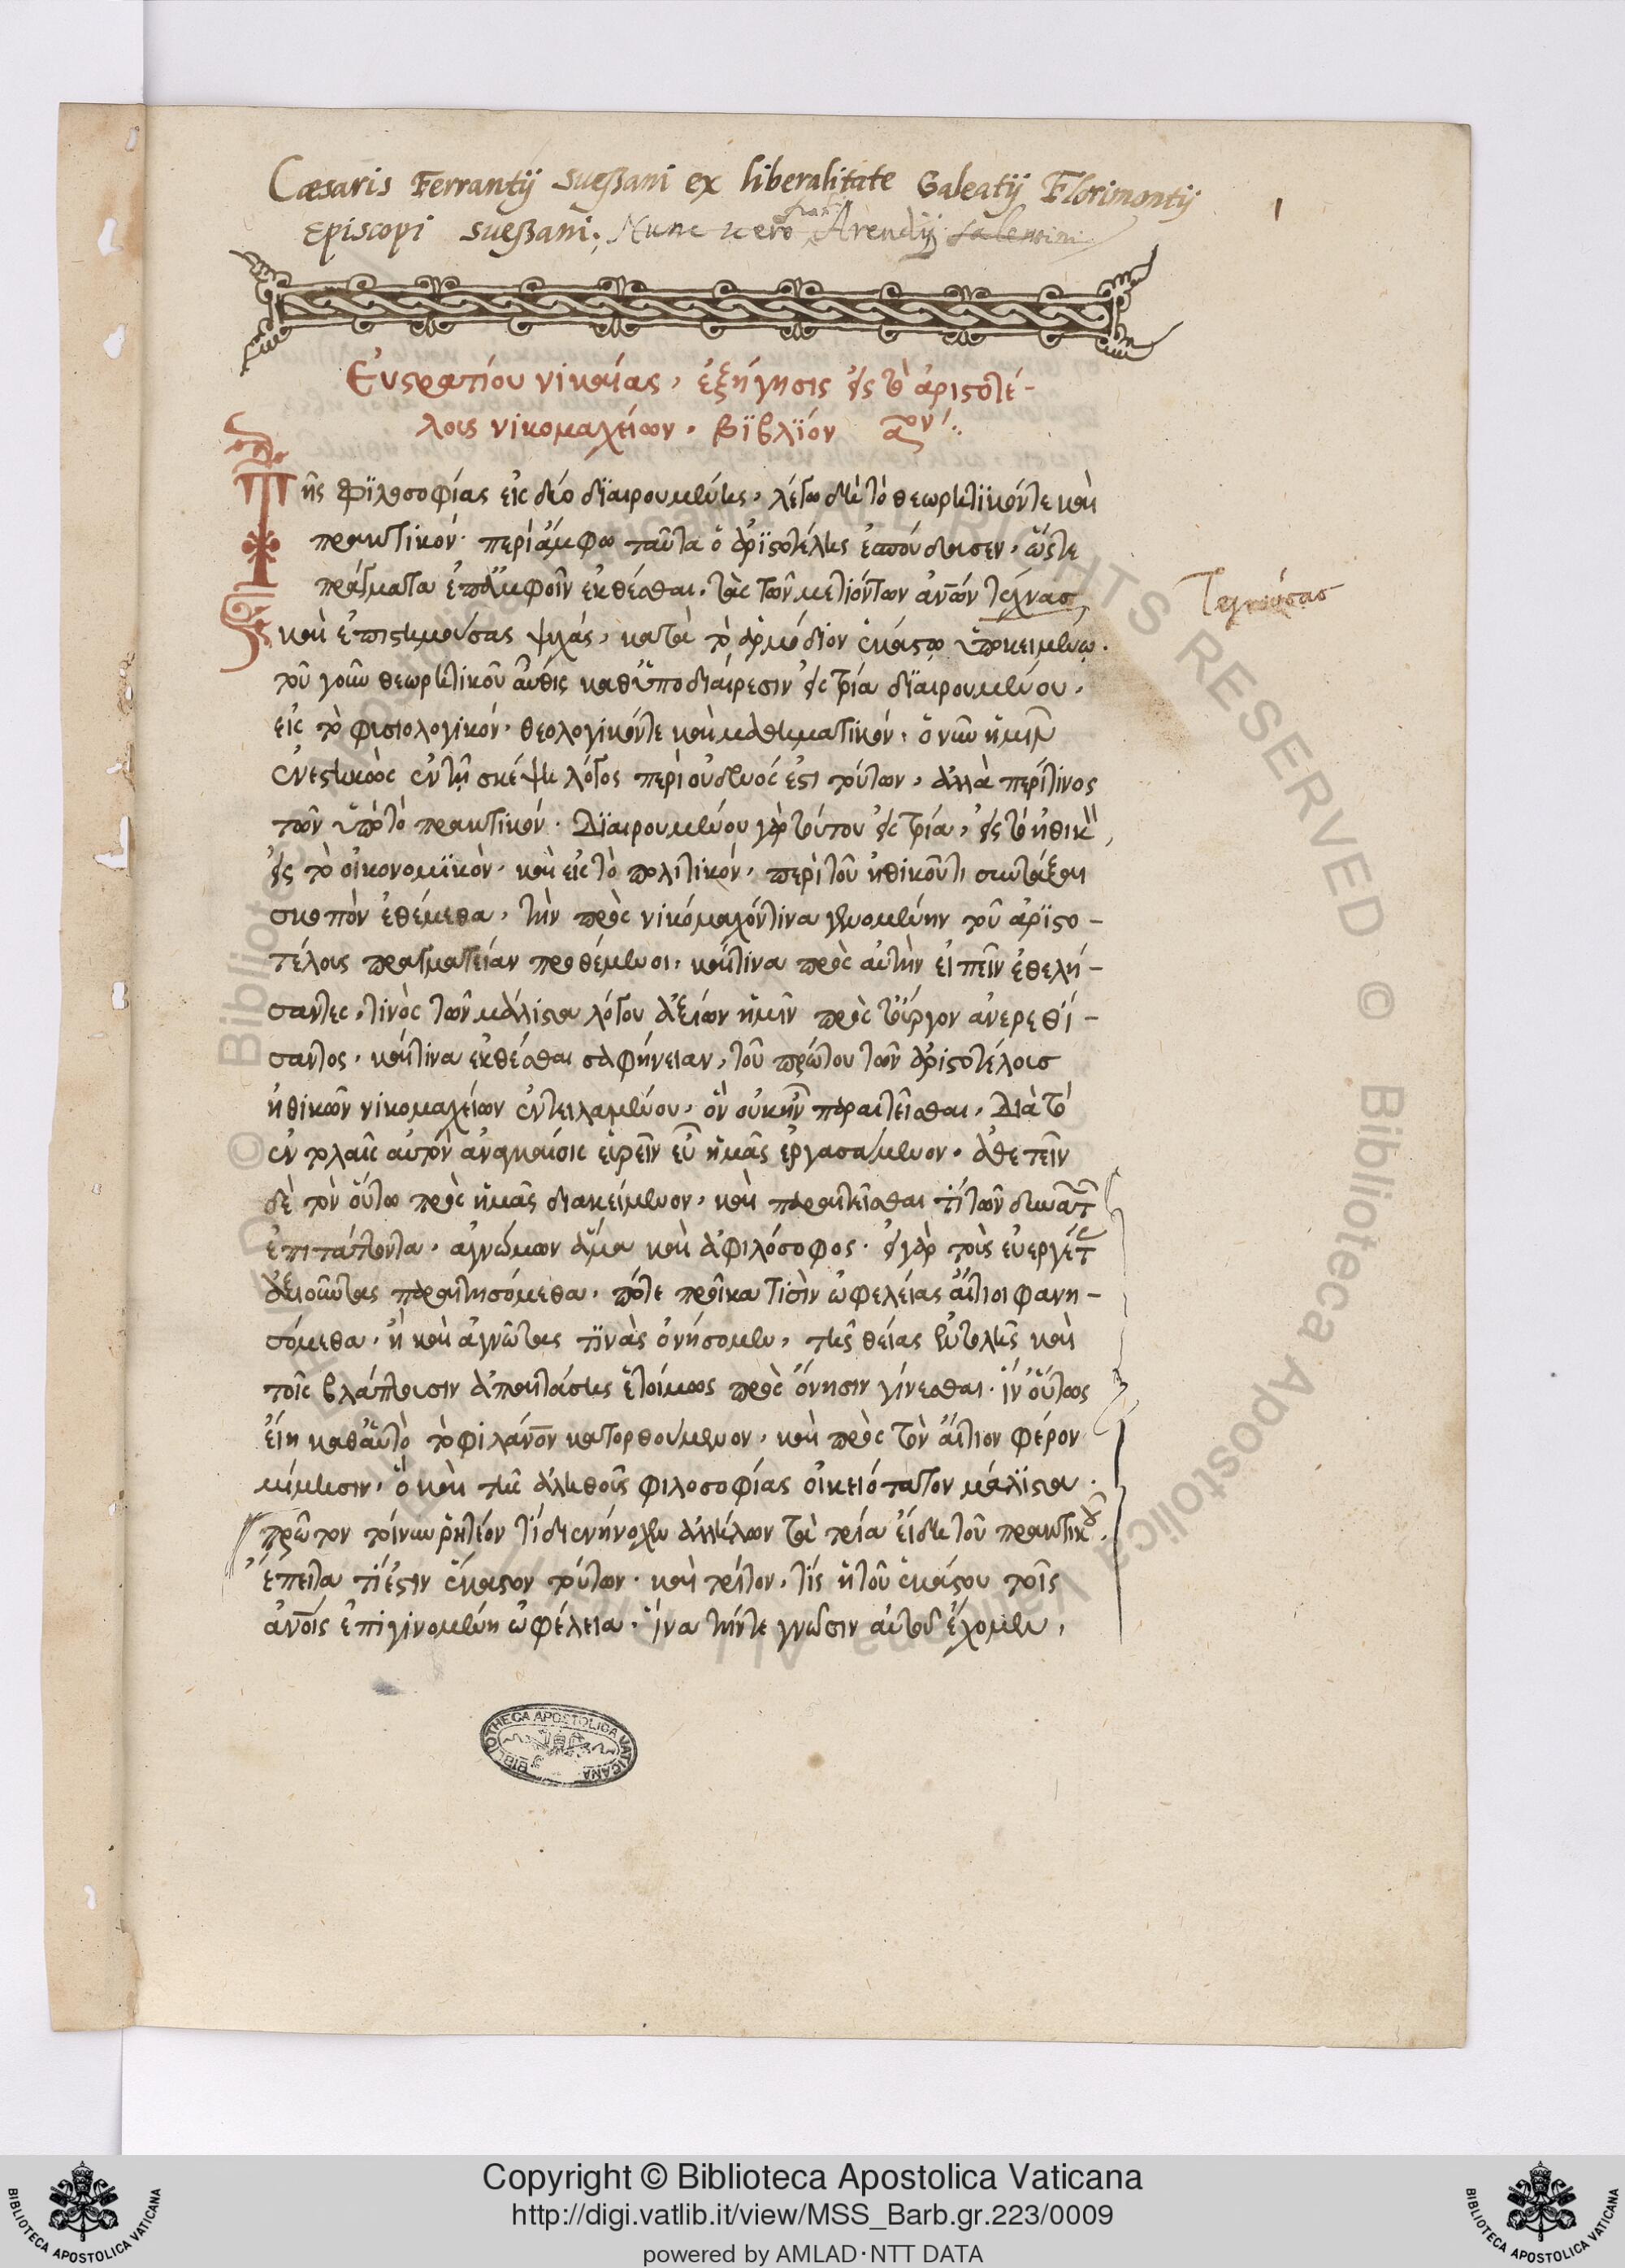 Cæsaris Ferrantij Sueßani ex liberalitate Galeatij Florimontij
1
Episcopi Sueßani. Nunc uero Arendij Salentini
Εὐστρατίου νικαίας, ἐξήγησις εἰς τὸ ἀριστοτέ-
λους νικομαχείων. βϊβλϊόν αον
Τῆς φϊλοσοφίας εἰς δύο δϊαιρουμένης, λέγω δὴ τὸ θεωρητϊκόν τε καὶ
πρακτικόν. περὶ ἄμφω ταῦτα ὁ ἀρϊστοτέλης ἐσπούδασεν, ὥστε
πράγματα ἐπ' ἀμφοῖν ἐκθέσθαι, τὰς τῶν μετιόντων ἀνων τέχνασ
Τεχνούσας
καὶ ἐπιστημούσας ψυχάς, κατὰ τὸ ἁρμόδιον ἑκάστῳ ὑποκειμένῳ.
τοῦ γοῦν θεωρητικοῦ αὖθις καθ' ὑποδιαίρεσιν εἰς τρία δϊαιρουμένου,
εἰς τὸ φυσιολογικόν, θεολογικόν τε καὶ μαθηματικόν, ὁ νῦν ἡμῖν
ἐνεστηκὼς ἐν τῇ σκέψει λόγος περὶ οὐδενός ἐστι τούτων, ἀλλὰ περί τινος
τῶν ὑπὸ τὸ πρακτικόν. Δϊαιρουμένου γὰρ τούτου εἰς τρία, εἰς τὸ ἠθικὸν,
εἰς τὸ οἰκονομϊκὸν, καὶ εἰς τὸ πολιτικόν, περὶ τοῦ ἠθικοῦ τι συντάξαι
σκοπὸν ἐθέμεθα, τὴν πρὸς νικόμαχόν τινα γενομένην τοῦ ἀρϊστο-
τέλους πραγματείαν προθέμενοι, καί τινα πρὸς αὐτὴν εἰπεῖν ἐθελή-
σαντες, τινὸς τῶν μάλιστα λόγου ἀξίων ἡμῖν πρὸς τὸ ἔργον ἀνερεθί-
σαντος, καί τινα ἐκθέσθαι σαφήνειαν, τοῦ πρώτου τῶν ἀριστοτέλουσ
ἠθικῶν νικομαχείων ἐντειλαμένου, ὃν οὐκ ἦν παραιτεῖσθαι, Διὰ τὸ
ἐν πολλαῖς αὐτὸν ἀναγκαίσις εὑρεῖν εὖ ἡμᾶς ἐργασάμενον. ἀθετεῖν
δὲ τὸν οὕτω πρὸς ἡμᾶς διακείμενον, καὶ παραιτεῖσθαι τὶ τῶν δυνατ
ἐπιτάττοντα, ἀγνώμων ἅμα καὶ ἀφιλόσοφος. εἰ γὰρ τοὺς εὐεργέτ
ἀξιοῦντας παραιτησόμεθα, πότε προῖκα τισὶν ὠφελείας αἴτιοι φανη-
σόμεθα, ἢ καὶ ἀγνῶτας τϊνὰς ὀνήσομεν, τῆς θείας ἐντολῆς καὶ
τοῖς βλάπτουσιν ἀπαιτάσης ἑτοίμως πρὸς ὄνησιν γίνεσθαι. ἵν' οὕτως
εἴη καθ' αὑτὸ τὸ φιλάνον κατορθούμενον, καὶ πρὸς τὸν αἴτιον φέρον
μίμησιν, ὃ καὶ τῆς ἀληθοῦς φιλοσοφίας οἰκειότατον μάλϊστα.
πρῶτον τοίνυν ῥητέον τί διενήνοχεν ἀλλήλων τὰ τρία εἴδη τοῦ πρακτικοῦ,
ἔπειτα τί ἐστιν ἕκαστον τούτων, καὶ τρίτον, τίς ἡ τοῦ ἑκάστου τοῖς
ἀνοις ἐπιγινομένη ὠφέλεια. ἵνα τήν τε γνῶσιν αὐτοῦ ἔχομεν,
BIBLIOTHECA APOSTOLICA VATICANA
Copyright © Biblioteca Apostolica Vaticana
http://digi.vatlib.it/view/MSS_Barb.gr.223/0009
powered by AMLAD·NTT DATA